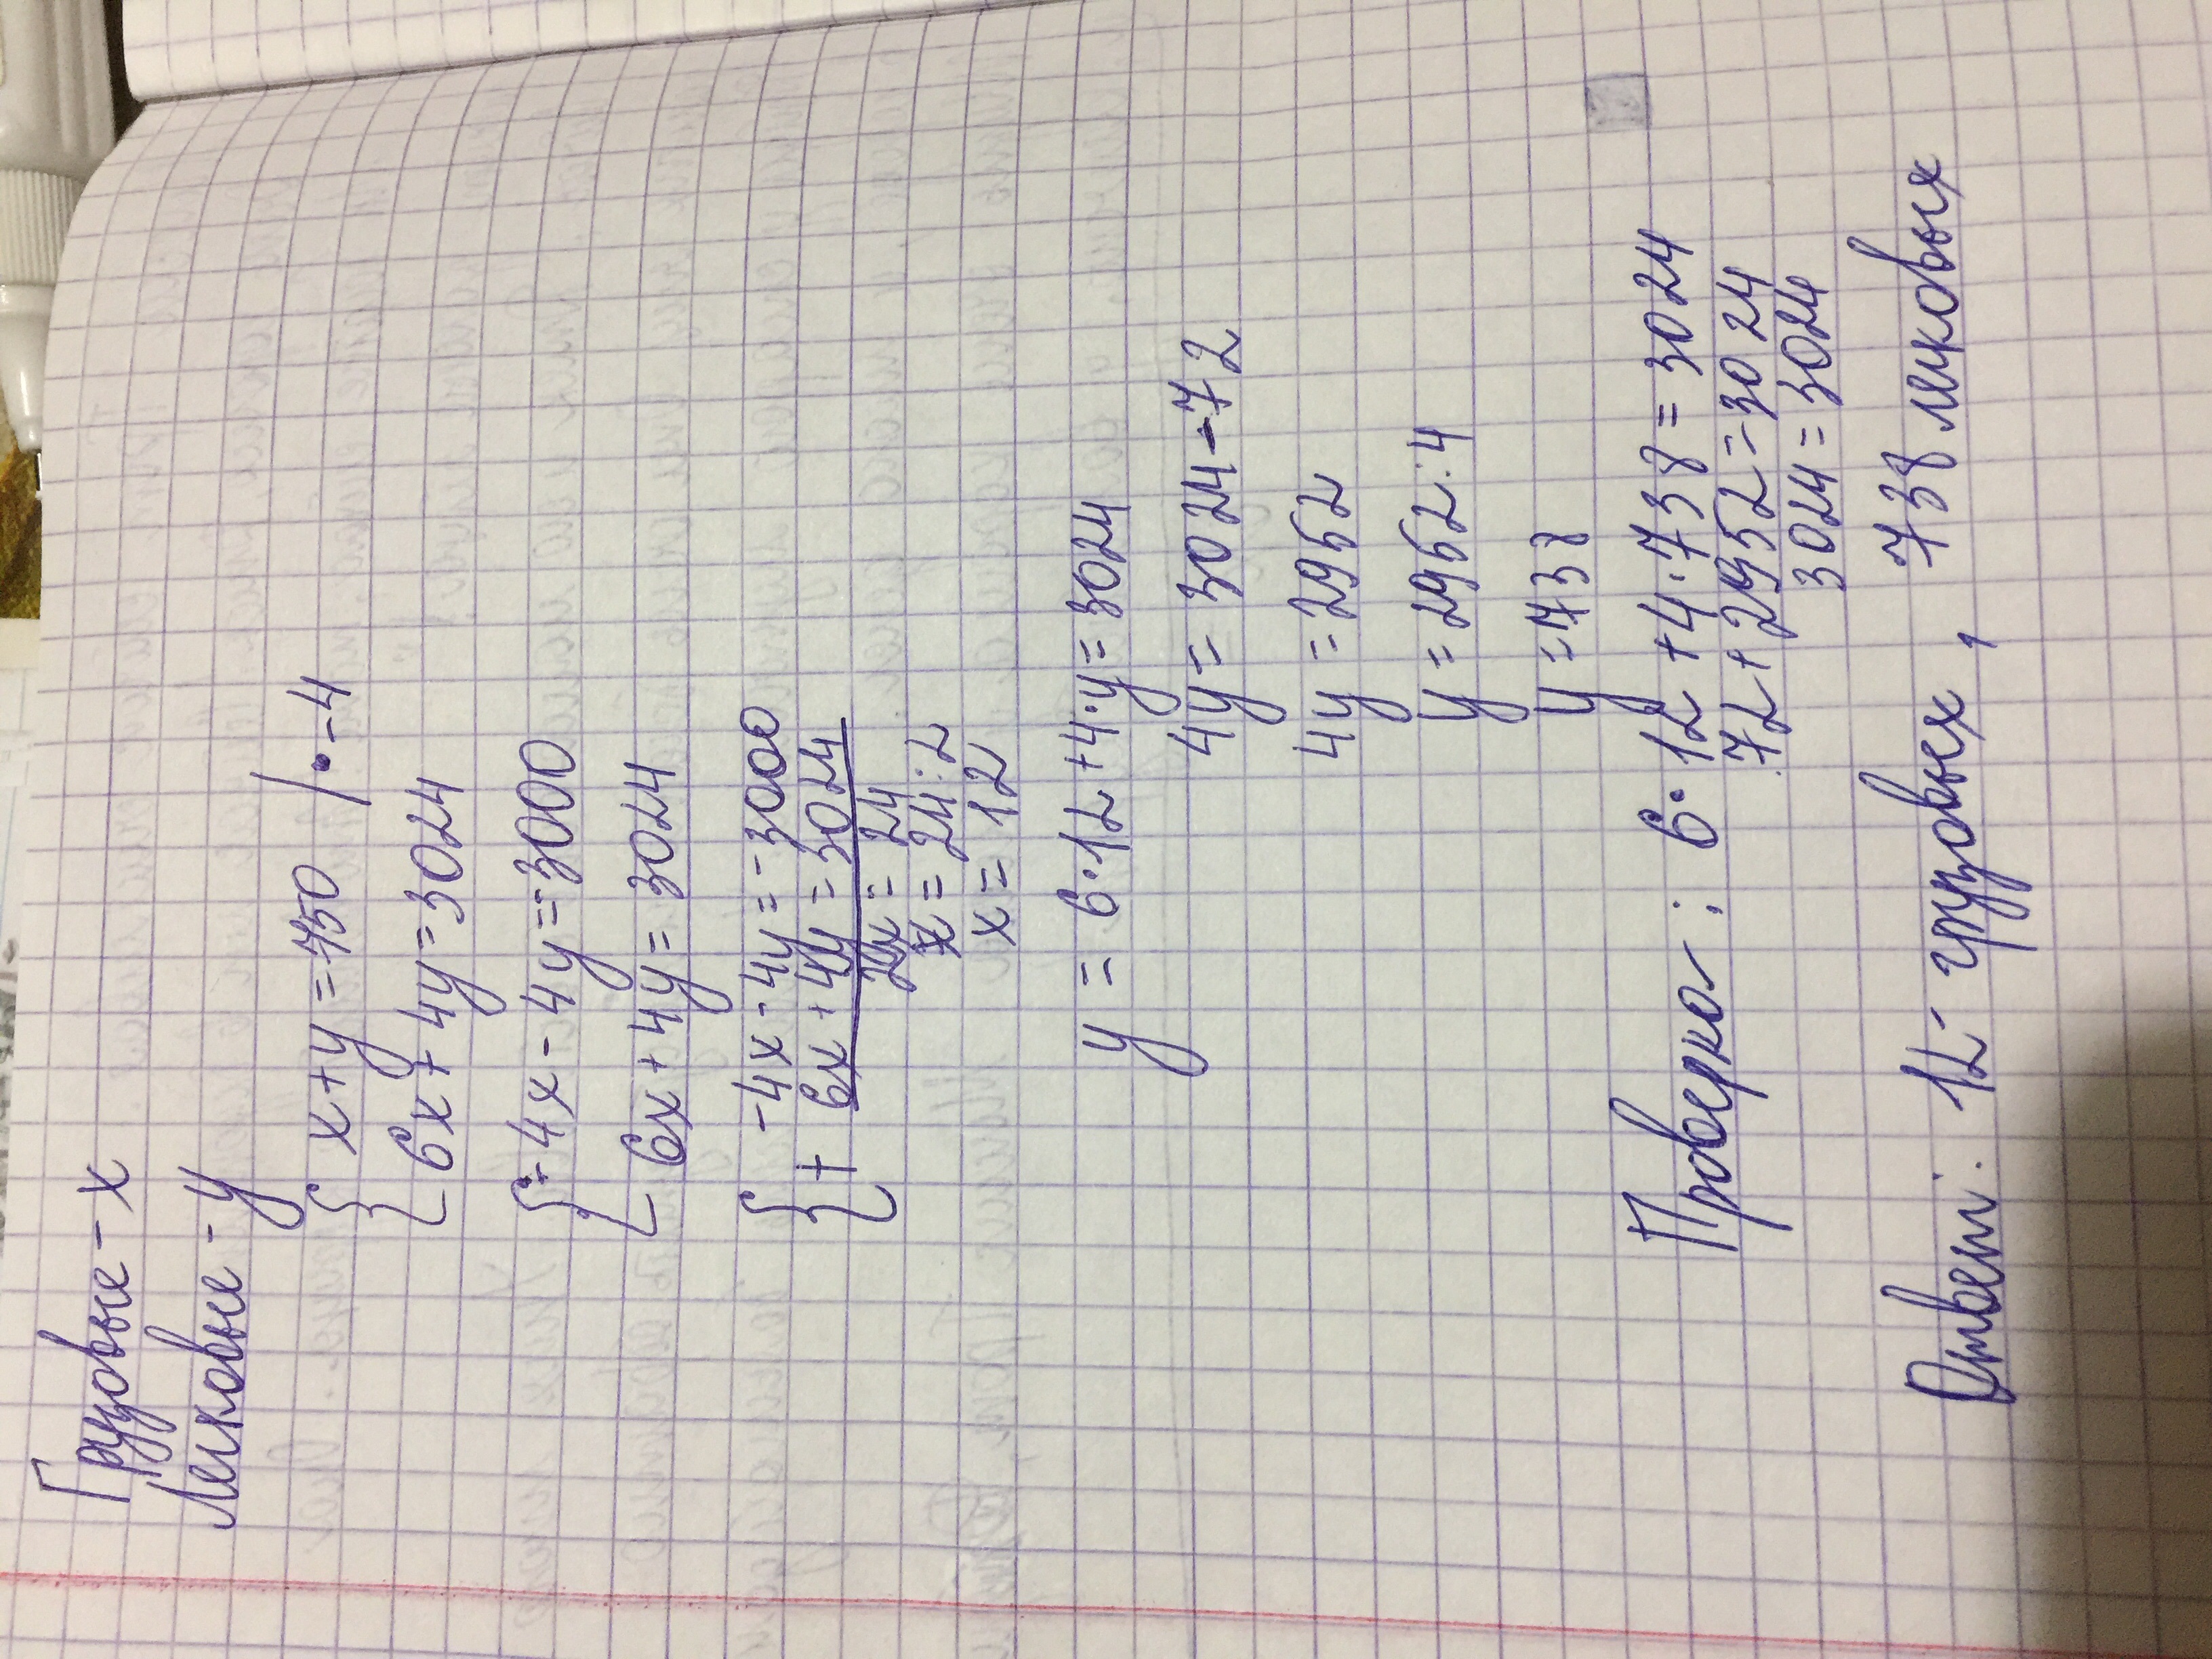 Грузовые - х
Легковые - у
{ х + у = 750 | • - 4
6х + 4у = 3024
{ - 4х - 4у = -3000
6х + 4у = 3024
{ + - 4х - 4у = -3000
6х + 4у = 3024
2х = 24
х = 24 : 2
х = 12
у = 6 • 12 + 4 • у = 3024
4у = 3024 - 72
4у = 2952
у = 2952 : 4
у = 738
Проверка : 6 • 12 + 4 • 738 = 3024
72 + 2952 = 3024
3024 = 3024
Ответ: 12 - грузовых , 738 легковых